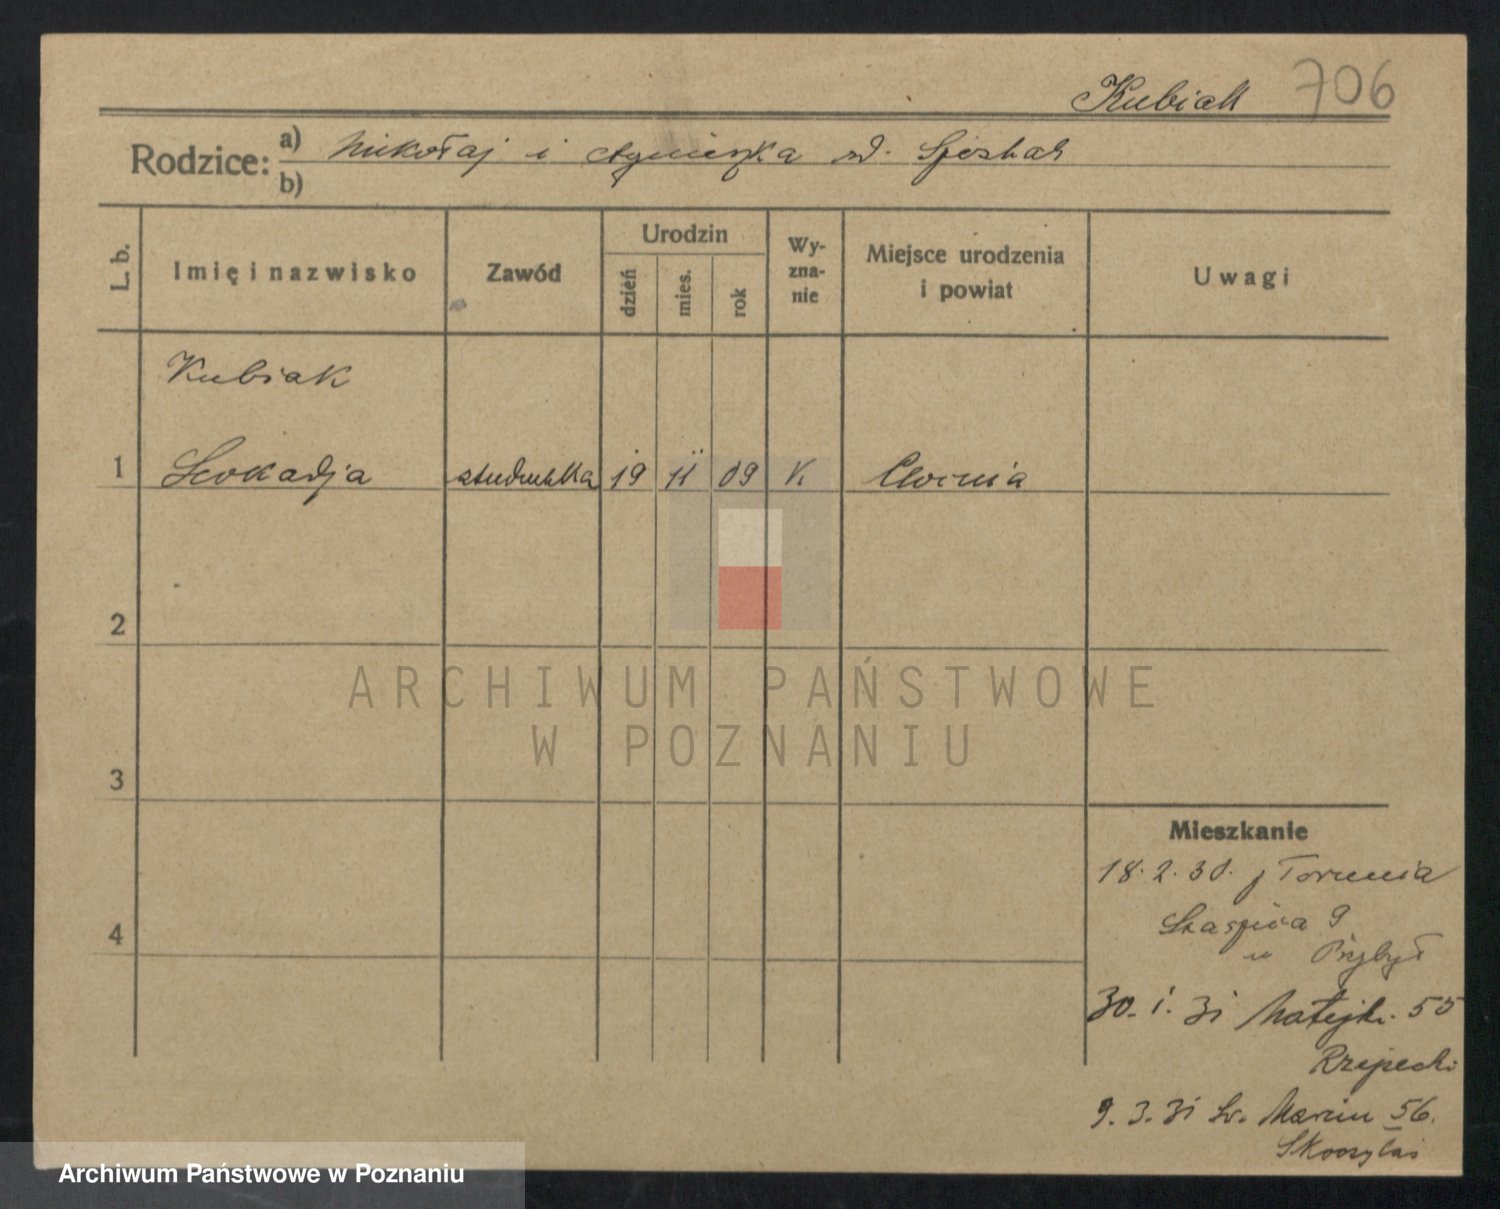 Kubiak 706
Rodzice: a) Mikołaj i Agnieszka
b)
L. b. Imię i nazwisko Zawód Urodzin dzień mies. rok Wyznanie Miejsce urodzenia i powiat Uwagi
Kubiak
1 Leokadja studentka 19 11 09 K
2
ARCHIWUM PAŃSTWOWE
W POZNANIU
3
Mieszkanie
18. 2. 30. z Torunia
4
9
u Przybył
30. 1. 31 Matejki. 55
Rzepecki
9. 3. 31 św. Marcin 56.
Archiwum Państwowe w Poznaniu